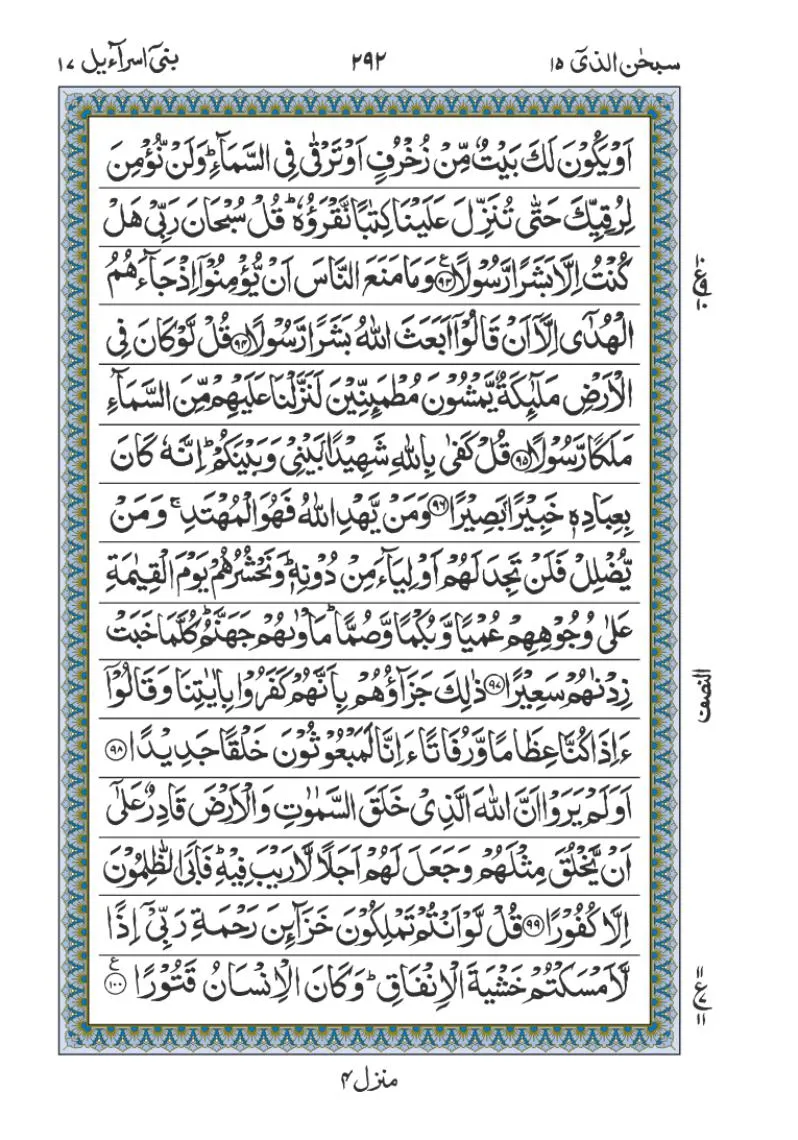 سبحٰن الذیٓ ١٥
٢٩٢
بنیٓ اسرآءیل ١٧
اَوۡ یَكُوۡنَ لَكَ بَیۡتٌ مِّنۡ زُخۡرُفٍ اَوۡ تَرۡقٰی فِی السَّمَآءِ ؕ وَلَنۡ نُّؤۡمِنَ
لِرُقِیِّكَ حَتّٰی تُنَزِّلَ عَلَیۡنَا كِتٰبًا نَّقۡرَؤُهٗ ؕ قُلۡ سُبۡحَانَ رَبِّیۡ هَلۡ
كُنۡتُ اِلَّا بَشَرًا رَّسُوۡلًا ﴿۹۳﴾ وَمَا مَنَعَ النَّاسَ اَنۡ یُّؤۡمِنُوۡۤا اِذۡ جَآءَهُمُ
الۡهُدٰۤی اِلَّاۤ اَنۡ قَالُوۡۤا اَبَعَثَ اللّٰهُ بَشَرًا رَّسُوۡلًا ﴿۹۴﴾ قُلۡ لَّوۡ كَانَ فِی
الۡاَرۡضِ مَلٰٓئِكَةٌ یَّمۡشُوۡنَ مُطۡمَئِنِّیۡنَ لَنَزَّلۡنَا عَلَیۡهِمۡ مِّنَ السَّمَآءِ
مَلَكًا رَّسُوۡلًا ﴿۹۵﴾ قُلۡ كَفٰی بِاللّٰهِ شَهِیۡدًۢا بَیۡنِیۡ وَبَیۡنَكُمۡ ؕ اِنَّهٗ كَانَ
بِعِبَادِهٖ خَبِیۡرًۢا بَصِیۡرًا ﴿۹۶﴾ وَمَنۡ یَّهۡدِ اللّٰهُ فَهُوَ الۡمُهۡتَدِ ۚ وَمَنۡ
یُّضۡلِلۡ فَلَنۡ تَجِدَ لَهُمۡ اَوۡلِیَآءَ مِنۡ دُوۡنِهٖ ؕ وَنَحۡشُرُهُمۡ یَوۡمَ الۡقِیٰمَةِ
عَلٰی وُجُوۡهِهِمۡ عُمۡیًا وَّبُكۡمًا وَّصُمًّا ؕ مَاۡوٰىهُمۡ جَهَنَّمُ ؕ كُلَّمَا خَبَتۡ
زِدۡنٰهُمۡ سَعِیۡرًا ﴿۹۷﴾ ذٰلِكَ جَزَآؤُهُمۡ بِاَنَّهُمۡ كَفَرُوۡا بِاٰیٰتِنَا وَقَالُوۡۤا
ءَاِذَا كُنَّا عِظَامًا وَّرُفَاتًا ءَاِنَّا لَمَبۡعُوۡثُوۡنَ خَلۡقًا جَدِیۡدًا ﴿۹۸﴾
اَوَلَمۡ یَرَوۡا اَنَّ اللّٰهَ الَّذِیۡ خَلَقَ السَّمٰوٰتِ وَالۡاَرۡضَ قَادِرٌ عَلٰۤی
اَنۡ یَّخۡلُقَ مِثۡلَهُمۡ وَجَعَلَ لَهُمۡ اَجَلًا لَّا رَیۡبَ فِیۡهِ ؕ فَاَبَی الظّٰلِمُوۡنَ
اِلَّا كُفُوۡرًا ﴿۹۹﴾ قُلۡ لَّوۡ اَنۡتُمۡ تَمۡلِكُوۡنَ خَزَآئِنَ رَحۡمَةِ رَبِّیۡۤ اِذًا
لَّاَمۡسَكۡتُمۡ خَشۡیَةَ الۡاِنۡفَاقِ ؕ وَكَانَ الۡاِنۡسَانُ قَتُوۡرًا ﴿۱۰۰﴾ ع
النصف
منزل ۴